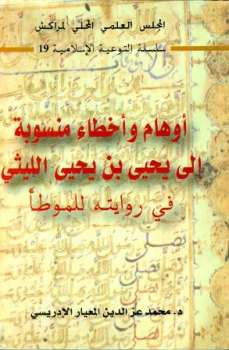 المجلس العلمي المحلي لمراكش
سلسلة التوعية الإسلامية 19
أوهام وأخطاء منسوبة
إلى يحيى بن يحيى الليثي
في روايته للموطأ
د. محمد عز الدين المعيار الإدريسي